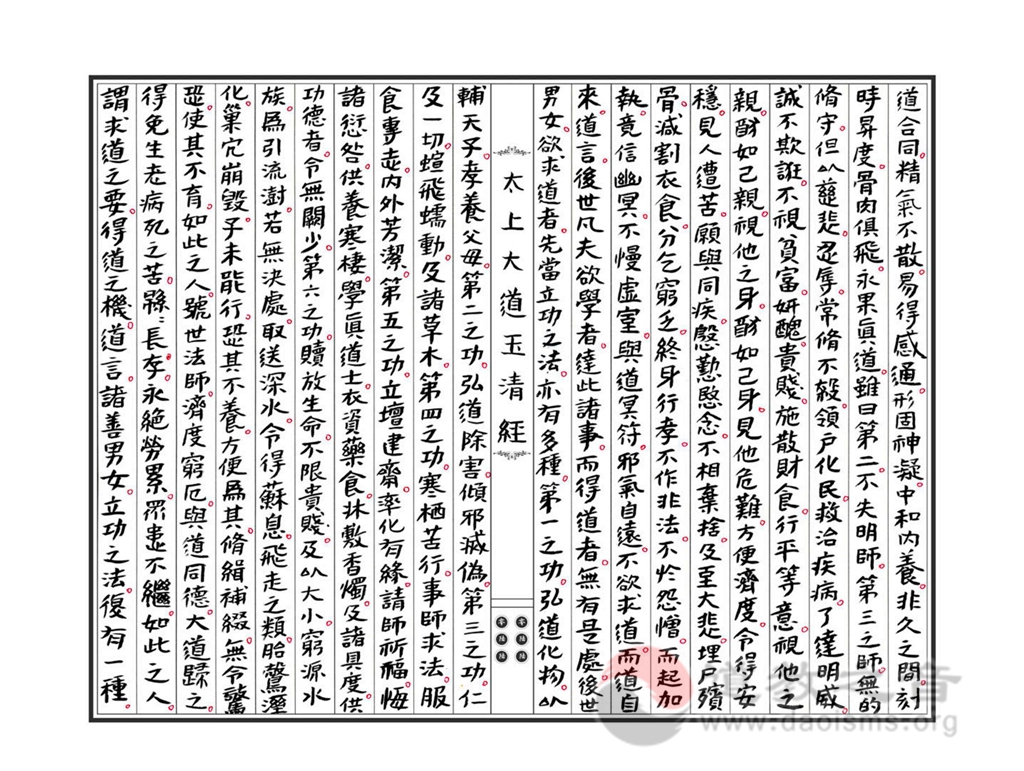 道合同精氣不散易得感通形固神凝中和內養非久之間刻
時昇度骨肉俱飛永果眞道雖曰第二不失明師第三之師無的
脩守但以慈悲忍辱常脩不殺領戶化民救治疾病了達明威
誠不欺誑不視貧富妍醜貴賤施散財食行平等意視他之
親酧如己親視他之身酧如己身見他危難方便濟度令得安
穩見人遭苦願與同疾慇懃愍念不相棄捨及至大悲埋尸殯
骨減割衣食分乞窮乏終身行孝不作非法不忿怨憎而起加
執竟信幽冥不慢虛室與道冥符邪氣自遠不欲求道而道自
來道言後世凡夫欲學者達此諸事而得道者無有是處後世
男女欲求道者先當立功之法亦有多種第一之功弘道化物以
太上大道玉清經
輔天子孝養父母第二之功弘道除害傾邪滅僞第三之功仁
及一切蝖飛蠕動及諸草木第四之功寒栖苦行事師求法服
食專志內外芳潔第五之功立壇建齋率化有緣請師祈福悔
諸愆咎供養寒棲學眞道士衣資藥食牀敷香燭及諸具度供
功德者令無闕少第六之功贖放生命不限貴賤及以大小窮源水
族爲引流澍若無決處取送深水令得蘇息飛走之類胎驚溼
化巢穴崩毀子未能行恐其不養方便爲其脩緝補綴無令驚
恐使其不育如此之人號世法師濟度窮厄與道同德大道歸之
得免生老病死之苦緜緜長存永絕勞累眾患不繼如此之人
謂求道之要得道之機道言諸善男女立功之法復有一種
道教之音
www.daoisms.org